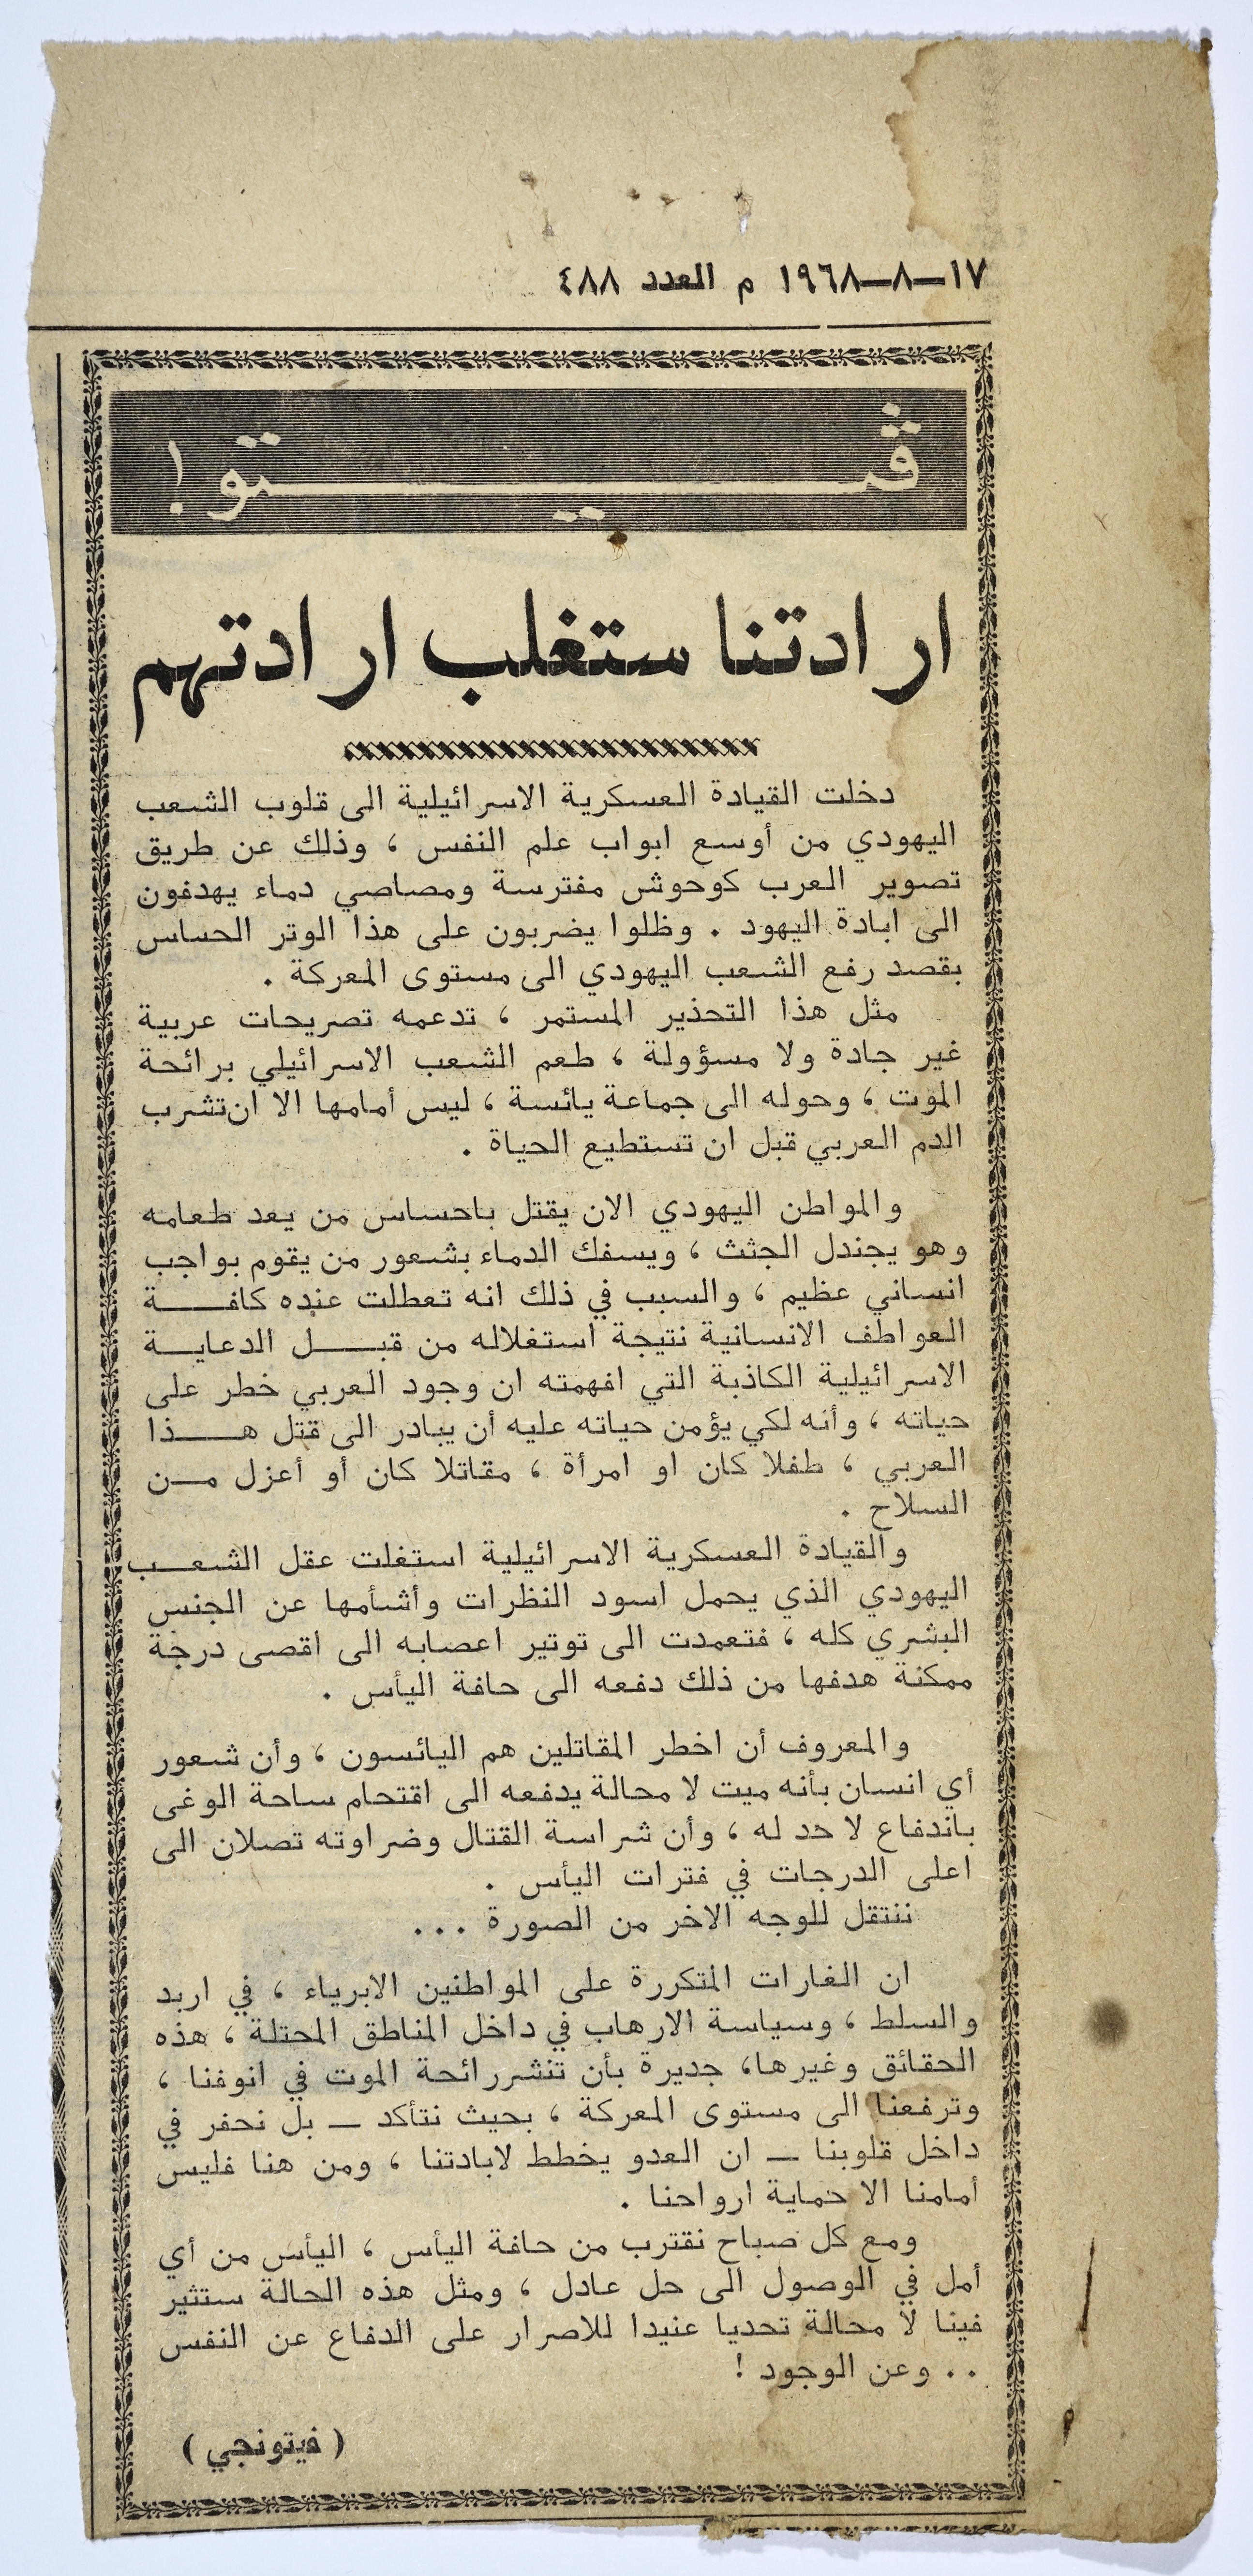 ١٧–٨–١٩٦٨ م العدد ٤٨٨
ڤيتو!
ارادتنا ستغلب ارادتهم
دخلت القيادة العسكرية الاسرائيلية الى قلوب الشعب
اليهودي من أوسع ابواب علم النفس ، وذلك عن طريق
تصوير العرب كوحوش مفترسة ومصاصي دماء يهدفون
الى ابادة اليهود . وظلوا يضربون على هذا الوتر الحساس
بقصد رفع الشعب اليهودي الى مستوى المعركة .
مثل هذا التحذير المستمر ، تدعمه تصريحات عربية
غير جادة ولا مسؤولة ، طعم الشعب الاسرائيلي برائحة
الموت ، وحوله الى جماعة يائسة ، ليس أمامها الا ان تشرب
الدم العربي قبل ان تستطيع الحياة .
والمواطن اليهودي الان يقتل باحساس من يعد طعامه
وهو يجندل الجثث ، ويسفك الدماء بشعور من يقوم بواجب
انساني عظيم ، والسبب في ذلك انه تعطلت عنده كافـــــة
العواطف الانسانية نتيجة استغلاله من قبـــل الدعايـــة
الاسرائيلية الكاذبة التي افهمته ان وجود العربي خطر على
حياته ، وأنه لكي يؤمن حياته عليه أن يبادر الى قتل هـــذا
العربي ، طفلا كان او امرأة ، مقاتلا كان أو أعزل مــن
السلاح .
والقيادة العسكرية الاسرائيلية استغلت عقل الشعــب
اليهودي الذي يحمل اسود النظرات وأشأمها عن الجنس
البشري كله ، فتعمدت الى توتير اعصابه الى اقصى درجة
ممكنة هدفها من ذلك دفعه الى حافة اليأس .
والمعروف أن اخطر المقاتلين هم اليائسون ، وأن شعور
أي انسان بأنه ميت لا محالة يدفعه الى اقتحام ساحة الوغى
باندفاع لا حد له ، وأن شراسة القتال وضراوته تصلان الى
اعلى الدرجات في فترات اليأس .
ننتقل للوجه الاخر من الصورة ...
ان الغارات المتكررة على المواطنين الابرياء ، في اربد
والسلط ، وسياسة الارهاب في داخل المناطق المحتلة ، هذه
الحقائق وغيرها، جديرة بأن تنشر رائحة الموت في انوفنا ،
وترفعنا الى مستوى المعركة ، بحيث نتأكد – بل نحفر في
داخل قلوبنا – ان العدو يخطط لابادتنا ، ومن هنا فليس
أمامنا الا حماية ارواحنا .
ومع كل صباح نقترب من حافة اليأس ، اليأس من أي
أمل في الوصول الى حل عادل ، ومثل هذه الحالة ستثير
فينا لا محالة تحديا عنيدا للاصرار على الدفاع عن النفس
.. وعن الوجود !
( فيتونجي )